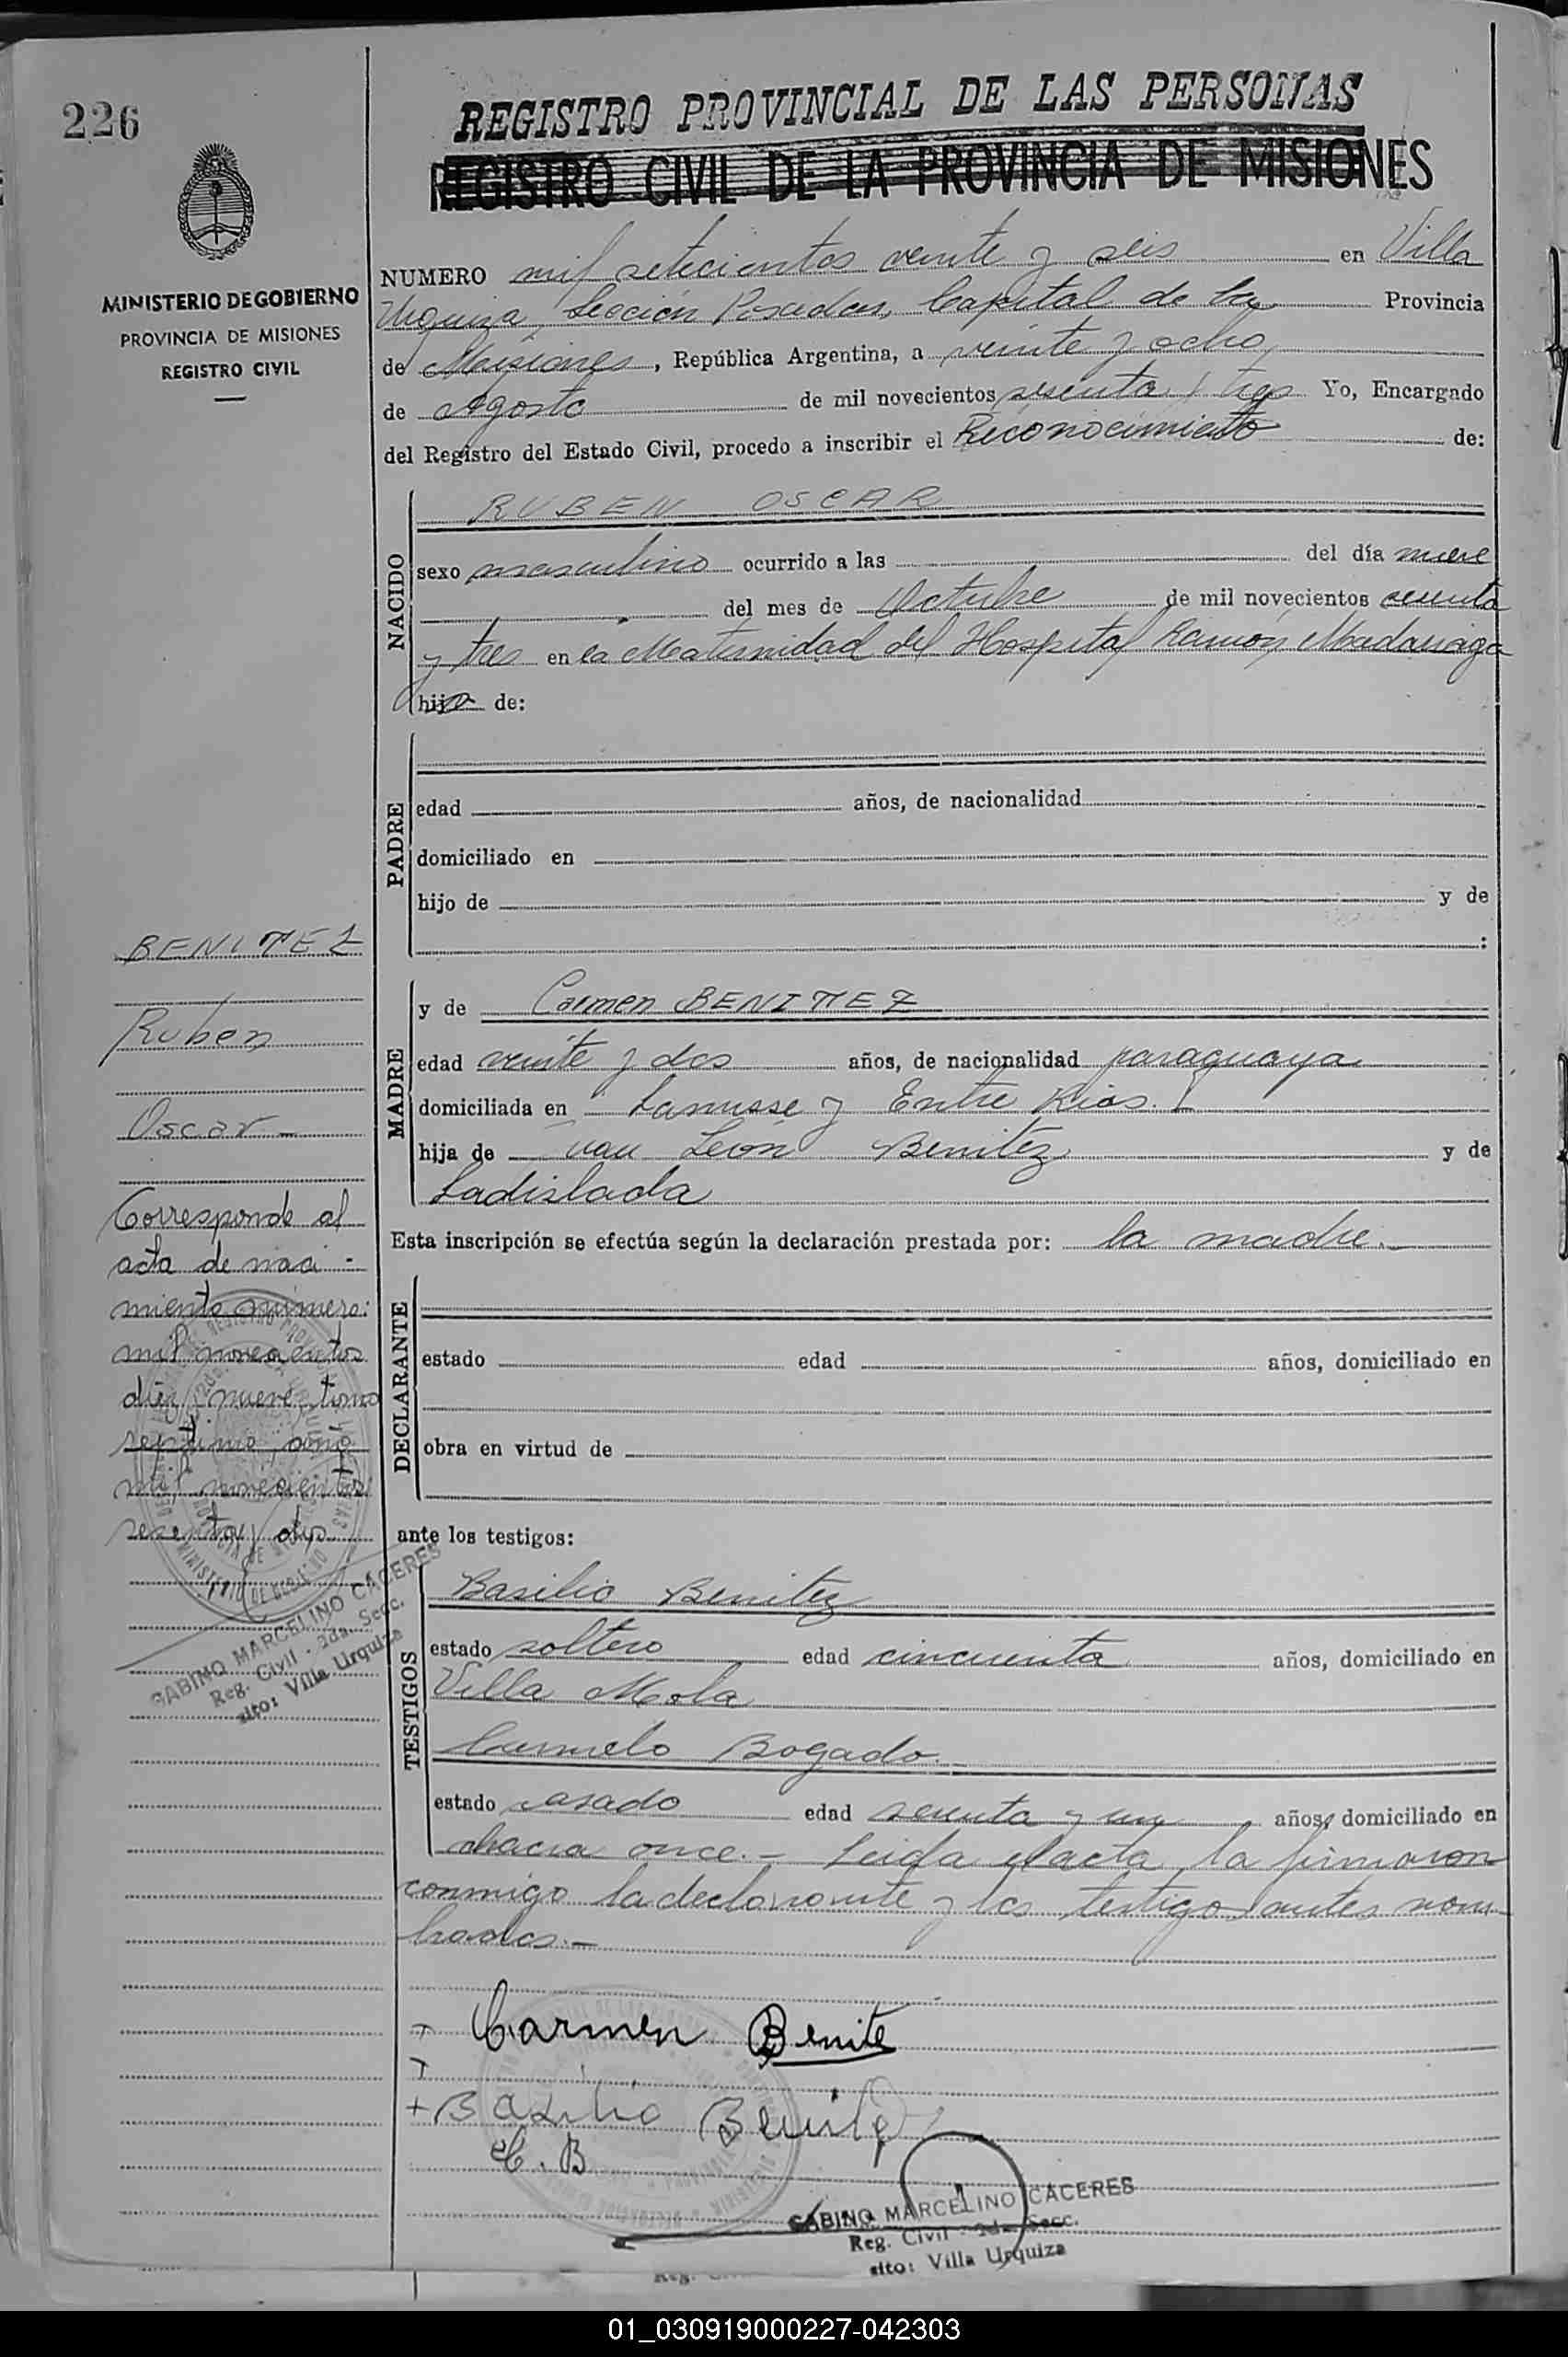 226
REGISTRO PROVINCIAL DE LAS PERSONAS
REGISTRO CIVIL DE LA PROVINCIA DE MISIONES
MINISTERIO DE GOBIERNO
PROVINCIA DE MISIONES
REGISTRO CIVIL
NUMERO mil setecientos veinte y seis en Villa
Urquiza, Sección Posadas, Capital de la Provincia
de Misiones, República Argentina, a veinte y ocho
de Agosto de mil novecientos sesenta y tres Yo, Encargado
del Registro del Estado Civil, procedo a inscribir el Reconocimiento de:
NACIDO
RUBEN OSCAR
sexo masculino ocurrido a las del día nueve
del mes de Octubre de mil novecientos sesenta
y tres en la Maternidad del Hospital Ramón Madariaga
hijo de:
PADRE
edad años, de nacionalidad
domiciliado en
hijo de y de
:
MADRE
y de Carmen BENITEZ
edad veinte y dos años, de nacionalidad paraguaya
domiciliada en Lanusse y Entre Rios.
hija de Juan León Benitez y de
Ladislada
Esta inscripción se efectúa según la declaración prestada por: la madre.-
DECLARANTE
estado edad años, domiciliado en
obra en virtud de
ante los testigos:
TESTIGOS
Basilio Benitez
estado soltero edad cincuenta años, domiciliado en
Villa Mola
Carmelo Bogado.
estado casado edad sesenta y un años, domiciliado en
chacra once.- Leida el acta, la firmaron
conmigo la declarante y los testigos antes nom-
brados.-
BENITEZ
Ruben
Oscar-
Corresponde al
acta de naci-
miento número:
mil novecientos
diez y nueve, tomo
septimo, año
mil novecientos
sesenta y dos.
SABINO MARCELINO CACERES
Reg. Civil - 2da. Secc.
sito: Villa Urquiza
+ Carmen Benite
+
+ Basilio Benitez
C. B
SABINO MARCELINO CACERES
Reg. Civil - 2da. Secc.
sito: Villa Urquiza
01_030919000227-042303